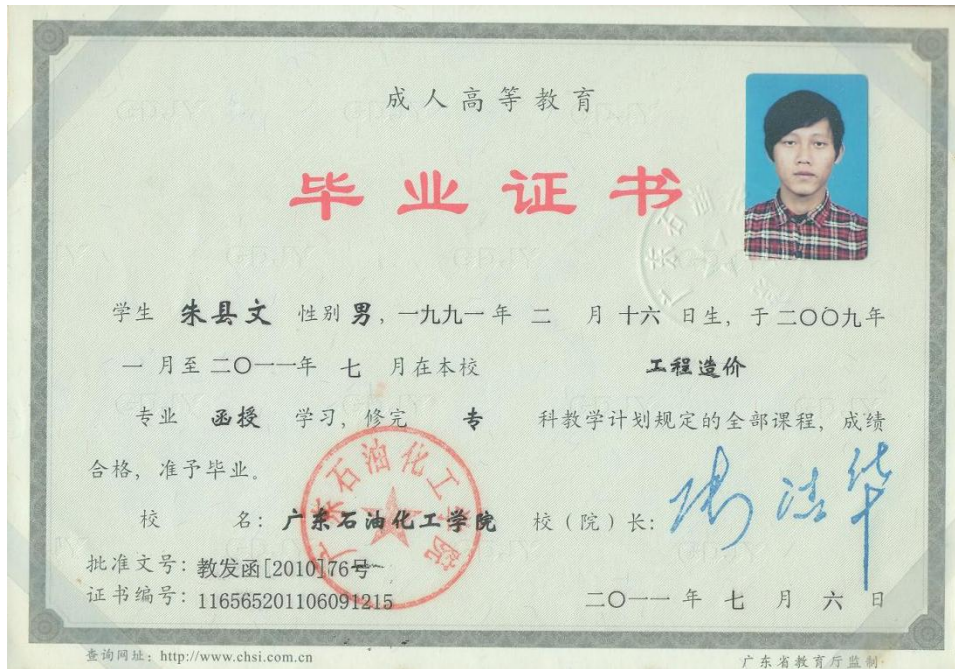 成人高等教育
毕业证书
学生 朱县文 性别 男，一九九一年 二 月 十六 日生，于二〇〇九年
一 月至 二〇一一年 七 月在本校 工程造价
专业 函授 学习，修完 专 科教学计划规定的全部课程，成绩
合格，准予毕业。
校 名：广东石油化工学院 校（院）长：
广东石油化工学院
批准文号：教发函[2010]76号
证书编号：116565201106091215
二〇一一 年 七 月 六 日
查询网址：http://www.chsi.com.cn
广东省教育厅监制